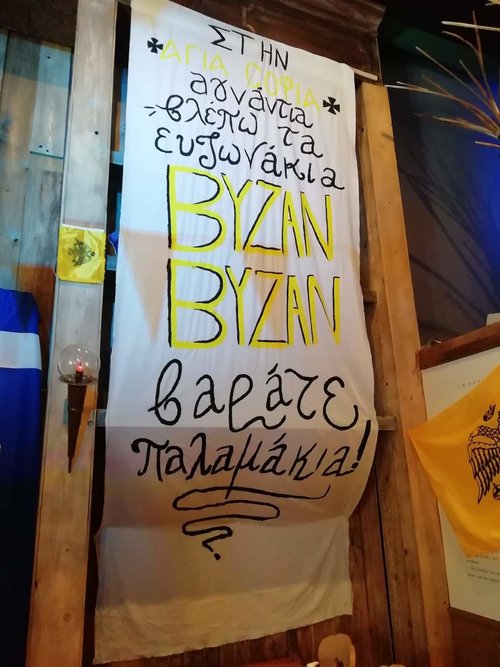 ΣΤΗΝ
ΑΓΙΑ ΣΟΦΙΑ
αγνάντια
βλέπω τα
ευζωνάκια
ΒΥΖΑΝ
ΒΥΖΑΝ
βαράτε
παλαμάκια!